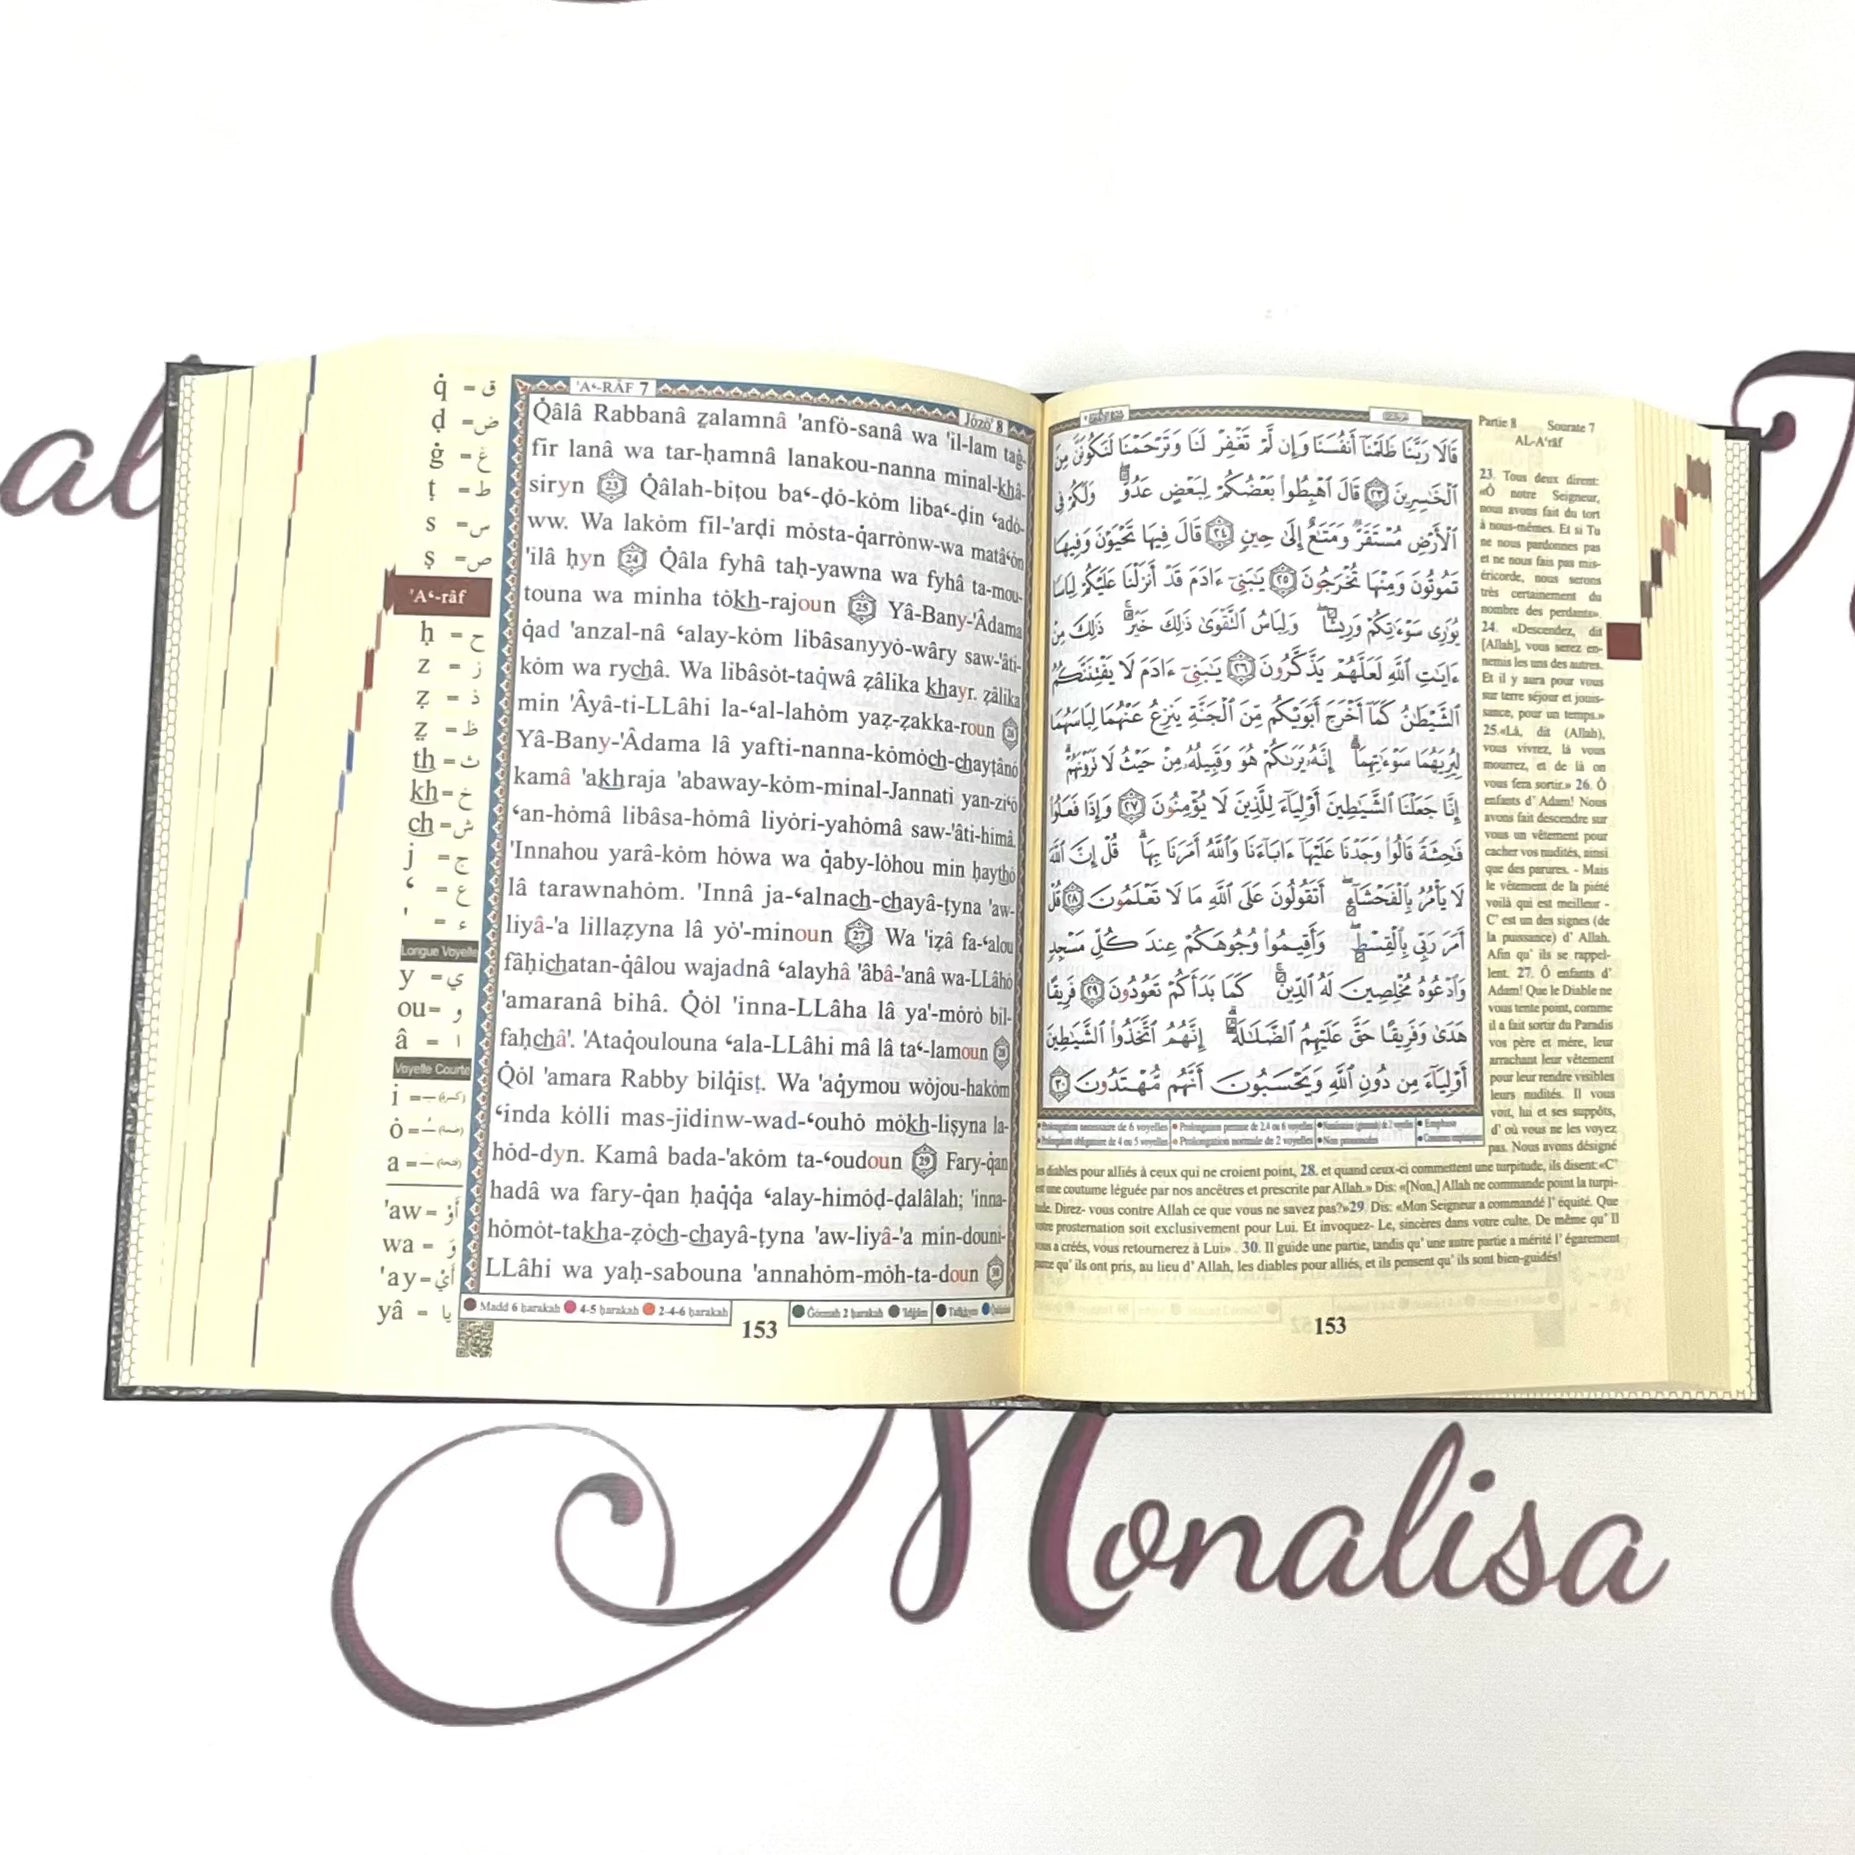 'A‘-RÂF 7
Józó' 8
Q̇âlâ Rabbanâ ẓalamnâ 'anfȯ-sanâ wa 'il-lam taġ-
fir lanâ wa tar-ḥamnâ lanakou-nanna minal-khâ-
siryn 23 Q̇âlah-biṭou ba‘-ḍȯ-kȯm liba‘-ḍin ‘adȯ-
ww. Wa lakȯm fil-'arḍi mȯsta-q̇arrȯnw-wa matâ‘ȯn
'ilâ ḥyn 24 Q̇âla fyhâ taḥ-yawna wa fyhâ ta-mou-
touna wa minha tȯkh-rajoun 25 Yâ-Bany-'Âdama
q̇ad 'anzal-nâ ‘alay-kȯm libâsanyyȯ-wâry saw-'âti-
kȯm wa rychâ. Wa libâsȯt-taq̇wâ ẓâlika khayr. ẓâlika
min 'Âyâ-ti-LLâhi la-‘al-lahȯm yaẓ-ẓakka-roun 26
Yâ-Bany-'Âdama lâ yafti-nanna-kȯmȯch-chayṭânȯ
kamâ 'akhraja 'abaway-kȯm-minal-Jannati yan-zi‘ȯ
‘an-hȯmâ libâsa-hȯmâ liyȯri-yahȯmâ saw-'âti-himâ.
'Innahou yarâ-kȯm hȯwa wa q̇aby-lȯhou min ḥaythȯ
lâ tarawnahȯm. 'Innâ ja-‘alnach-chayâ-ṭyna 'aw-
liyâ-'a lillaẓyna lâ yȯ'-minoun 27 Wa 'iẓâ fa-‘alou
fâḥichatan-q̇âlou wajadnâ ‘alayhâ 'âbâ-'anâ wa-LLâhȯ
'amaranâ bihâ. Q̇ȯl 'inna-LLâha lâ ya'-mȯrȯ bil-
faḥchâ'. 'Ataq̇oulouna ‘ala-LLâhi mâ lâ ta‘-lamoun 28
Q̇ȯl 'amara Rabby bilq̇isṭ. Wa 'aq̇ymou wȯjou-hakȯm
‘inda kȯlli mas-jidinw-wad-‘ouhȯ mȯkh-liṣyna la-
hȯd-dyn. Kamâ bada-'akȯm ta-‘oudoun 29 Fary-q̇an
hadâ wa fary-q̇an ḥaq̇q̇a ‘alay-himȯḍ-ḍalâlah; 'inna-
hȯmȯt-takha-ẓȯch-chayâ-ṭyna 'aw-liyâ-'a min-douni-
LLâhi wa yaḥ-sabouna 'annahȯm-mȯh-ta-doun 30
Madd 6 ḥarakah 4-5 ḥarakah 2-4-6 ḥarakah
Ġȯnnah 2 ḥarakah Idġâm Tafkhym
153
q̇ = ق
ḍ = ض
ġ = غ
ṭ = ط
s = س
ṣ = ص
'A‘-râf
ḥ = ح
z = ز
ẓ = ذ
ẓ̤ = ظ
th = ث
kh = خ
ch = ش
j = ج
‘ = ع
' = ء
Longue Voyelle
y = ي
ou = و
â = ا
Voyelle Courte
i = (كسرة)
ȯ = (ضمة)
a = (فتحة)
'aw = أَوْ
wa = وَ
'ay = أَيْ
yâ = يا
قَالَا رَبَّنَا ظَلَمْنَا أَنفُسَنَا وَإِن لَّمْ تَغْفِرْ لَنَا وَتَرْحَمْنَا لَنَكُونَنَّ مِنَ
الْخَاسِرِينَ ٢٣ قَالَ اهْبِطُوا بَعْضُكُمْ لِبَعْضٍ عَدُوٌّ وَلَكُمْ فِي
الْأَرْضِ مُسْتَقَرٌّ وَمَتَاعٌ إِلَىٰ حِينٍ ٢٤ قَالَ فِيهَا تَحْيَوْنَ وَفِيهَا
تَمُوتُونَ وَمِنْهَا تُخْرَجُونَ ٢٥ يَابَنِي آدَمَ قَدْ أَنزَلْنَا عَلَيْكُمْ لِبَاسًا
يُوَارِي سَوْآتِكُمْ وَرِيشًا وَلِبَاسُ التَّقْوَىٰ ذَٰلِكَ خَيْرٌ ذَٰلِكَ مِنْ
آيَاتِ اللَّهِ لَعَلَّهُمْ يَذَّكَّرُونَ ٢٦ يَابَنِي آدَمَ لَا يَفْتِنَنَّكُمُ
الشَّيْطَانُ كَمَا أَخْرَجَ أَبَوَيْكُم مِّنَ الْجَنَّةِ يَنزِعُ عَنْهُمَا لِبَاسَهُمَا
لِيُرِيَهُمَا سَوْآتِهِمَا إِنَّهُ يَرَاكُمْ هُوَ وَقَبِيلُهُ مِنْ حَيْثُ لَا تَرَوْنَهُمْ
إِنَّا جَعَلْنَا الشَّيَاطِينَ أَوْلِيَاءَ لِلَّذِينَ لَا يُؤْمِنُونَ ٢٧ وَإِذَا فَعَلُوا
فَاحِشَةً قَالُوا وَجَدْنَا عَلَيْهَا آبَاءَنَا وَاللَّهُ أَمَرَنَا بِهَا قُلْ إِنَّ اللَّهَ
لَا يَأْمُرُ بِالْفَحْشَاءِ أَتَقُولُونَ عَلَى اللَّهِ مَا لَا تَعْلَمُونَ ٢٨ قُلْ
أَمَرَ رَبِّي بِالْقِسْطِ وَأَقِيمُوا وُجُوهَكُمْ عِندَ كُلِّ مَسْجِدٍ
وَادْعُوهُ مُخْلِصِينَ لَهُ الدِّينَ كَمَا بَدَأَكُمْ تَعُودُونَ ٢٩ فَرِيقًا
هَدَىٰ وَفَرِيقًا حَقَّ عَلَيْهِمُ الضَّلَالَةُ إِنَّهُمُ اتَّخَذُوا الشَّيَاطِينَ
أَوْلِيَاءَ مِن دُونِ اللَّهِ وَيَحْسَبُونَ أَنَّهُم مُّهْتَدُونَ ٣٠
Partie 8 Sourate 7
AL-A'râf
23. Tous deux dirent:
«Ô notre Seigneur,
nous avons fait du tort
à nous-mêmes. Et si Tu
ne nous pardonnes pas
et ne nous fais pas mis-
éricorde, nous serons
très certainement du
nombre des perdants».
24. «Descendez, dit
[Allah], vous serez en-
nemis les uns des autres.
Et il y aura pour vous
sur terre séjour et jouis-
sance, pour un temps.»
25.«Là, dit (Allah),
vous vivrez, là vous
mourrez, et de là on
vous fera sortir.» 26. Ô
enfants d' Adam! Nous
avons fait descendre sur
vous un vêtement pour
cacher vos nudités, ainsi
que des parures. - Mais
le vêtement de la piété
voilà qui est meilleur -
C' est un des signes (de
la puissance) d' Allah.
Afin qu' ils se rappel-
lent. 27. Ô enfants d'
Adam! Que le Diable ne
vous tente point, comme
il a fait sortir du Paradis
vos père et mère, leur
arrachant leur vêtement
pour leur rendre visibles
leurs nudités. Il vous
voit, lui et ses suppôts,
d' où vous ne les voyez
pas. Nous avons désigné
les diables pour alliés à ceux qui ne croient point, 28. et quand ceux-ci commettent une turpitude, ils disent:«C'
est une coutume léguée par nos ancêtres et prescrite par Allah.» Dis: «[Non,] Allah ne commande point la turpi-
tude. Direz- vous contre Allah ce que vous ne savez pas?»29. Dis: «Mon Seigneur a commandé l' équité. Que
votre prosternation soit exclusivement pour Lui. Et invoquez- Le, sincères dans votre culte. De même qu' Il
vous a créés, vous retournerez à Lui» . 30. Il guide une partie, tandis qu' une autre partie a mérité l' égarement
parce qu' ils ont pris, au lieu d' Allah, les diables pour alliés, et ils pensent qu' ils sont bien-guidés!
Prolongation nécessaire de 6 voyelles Prolongation permise de 2,4 ou 6 voyelles
Prolongation obligatoire de 4 ou 5 voyelles Prolongation normale de 2 voyelles Non prononcées
153
al
Monalisa